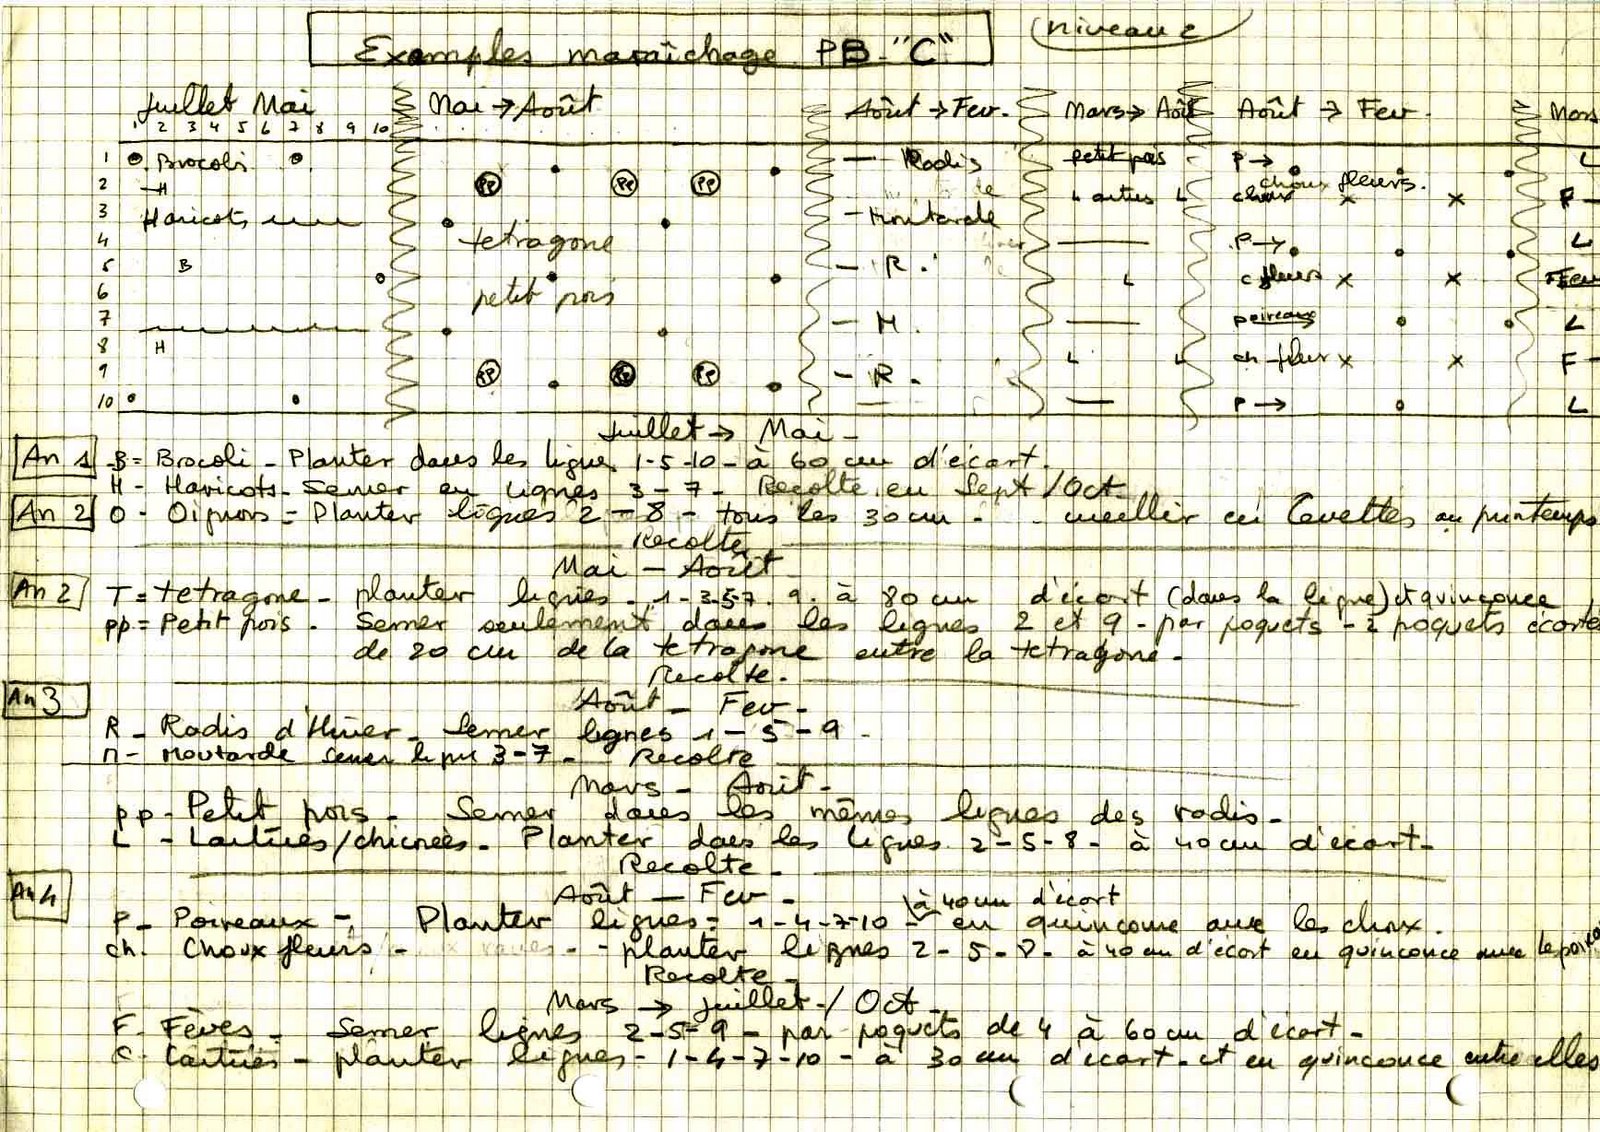 Examples maraîchage PB "C"
niveau 2
Juillet Mai
Mai → Août
Août → Fev.
Mars → Aôut
Août → Fev.
Mars
1 2 3 4 5 6 7 8 9 10
1 Brocoli
— Radis
petit pois
P →
L
2 H
PP PP PP
L aitues L
choux fleurs.
choux x x
F -
3 Haricots
— Moutarde
4
tetragone
P →
L
5 B
— R.
L
c fleurs x x
Fev
6
petit pois
7
— M.
poireaux
L
8 H
L L
ch-fleur x x
F -
9
PP PP PP
— R.
10
P →
L
Juillet → Mai -
An 1 B = Brocoli - Planter dans les lignes 1-5-10 - à 60 cm d'écart.
H - Haricots - Semer en lignes 3 - 7 - Recolte en Sept / Oct
An 2 O - Oignons = Planter lignes 2 - 8 - tous les 30 cm - cueillir en Cevettes au printemps
Recolte
Mai - Août
An 2 T = tetragone - planter lignes - 1-3-5-7. 9. à 80 cm d'écart (dans la ligne) et quinconce
pp = Petit pois. Semer seulement dans les lignes 2 et 9 - par poquets - 2 poquets écartés
de 20 cm de la tetragone entre la tetragone.
Recolte.
An 3
Août - Fev -
R - Radis d'Hiver - Semer lignes 1 - 5 - 9 -
M - Moutarde semer ligne 3 - 7 - Recolte
Mars - Août -
pp - Petit pois - Semer dans les mêmes lignes des radis -
L - Laitues/chicorées - Planter dans les lignes 2 - 5 - 8 - à 40 cm d'écart -
Recolte -
An 4
Août - Fev -
à 40 cm d'écart
P - Poireaux - Planter lignes = 1 - 4 - 7 - 10 - en quinconce avec les choux.
ch. Choux fleurs - planter lignes 2 - 5 - 8 - à 40 cm d'écart en quinconce avec les
Recolte -
Mars → Juillet - / Oct -
F - Fèves - Semer lignes 2-5-9 - par poquets de 4 à 60 cm d'écart -
C - Laitues - planter lignes - 1 - 4 - 7 - 10 - à 30 cm d'écart - et en quinconce entre elles